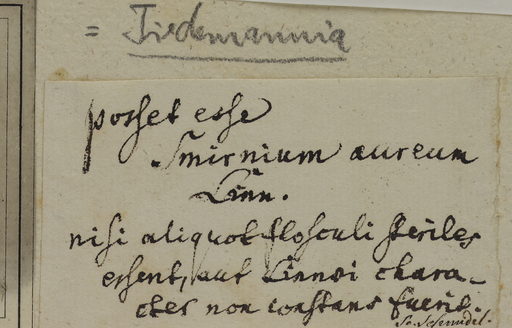 = Tiedemannia
posset esse
Smirnium aureum
Linn.
nisi aliquot flosculi steriles
essent, aut Linnei chara-
cter non constans fuerit.